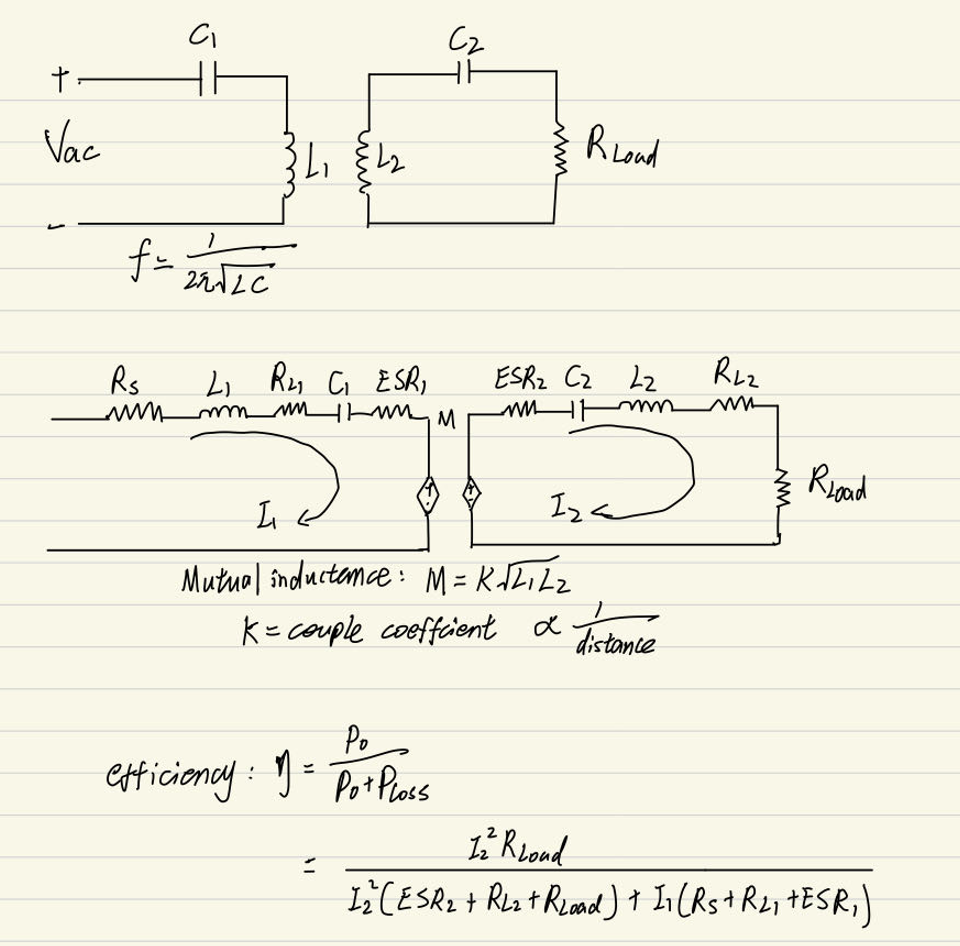 C1 C2
+
Vac L1 L2 RLoad
-
f = 1/(2π√LC)
Rs L1 RL1 C1 ESR1 M ESR2 C2 L2 RL2
+ +
- -
I1 I2 RLoad
Mutual inductance: M = K√L1L2
K = couple coeffcient ∝ 1/distance
efficiency: η = Po/(Po+PLoss)
= I2²RLoad/(I2²(ESR2 + RL2 + RLoad) + I1(Rs + RL1 + ESR1))